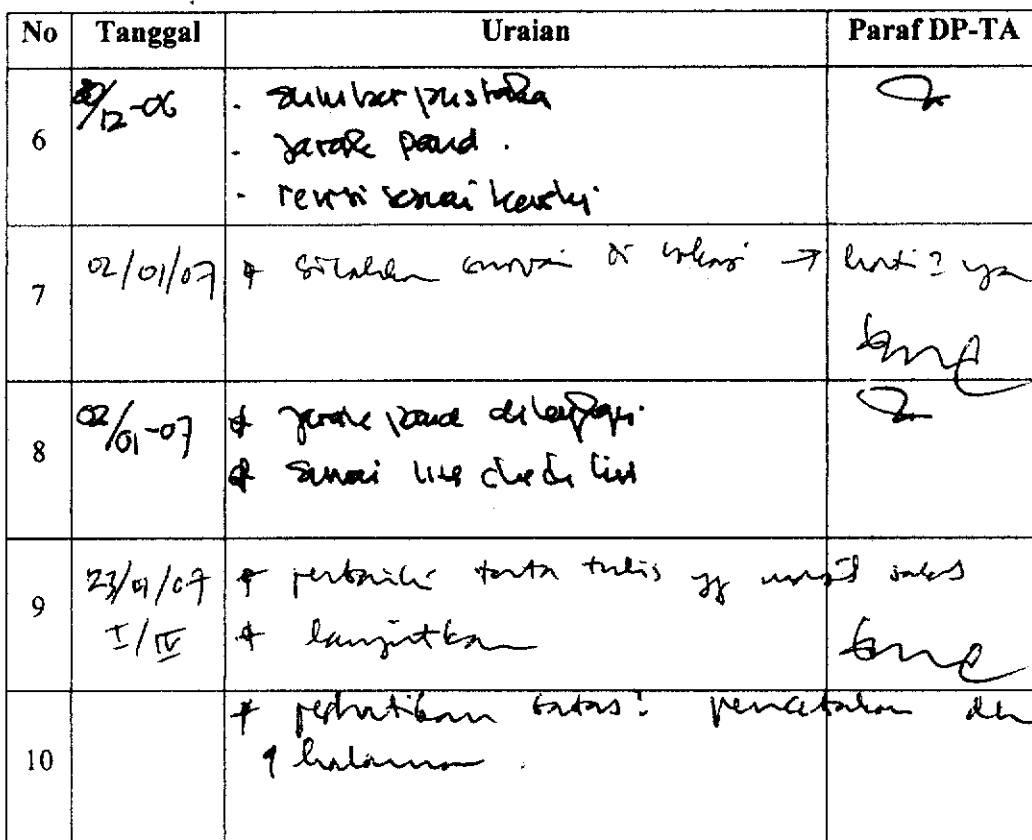 No Tanggal Uraian Paraf DP-TA
6 /12-06 - sumber pustaka
- jarak pand.
- revisi sesuai
7 02/01/07 * silahkan survai di lokasi → hati2 ya
8 02/01-07 * jarak pand dilengkapi
* sesuai
9 23/01/07 * perbaiki tata tulis yg masih salah
I/IV * lanjutkan
10 * perhatikan batas2 pencetakan dan
halaman.